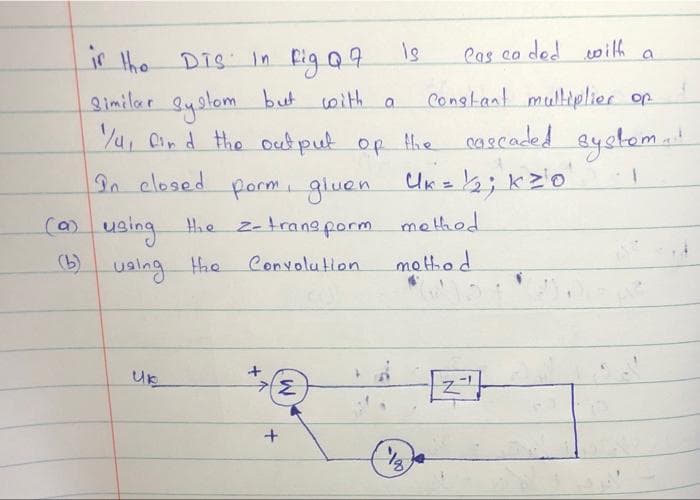 if the DTS in Fig Q7 is cascaded with a
similar system but with a constant multiplier of
1/4, find the output of the cascaded system
In closed form, given uk = 1/2; k ≥ 0
(a) using the z-transform method
(b) using the Convolution method
uk + Σ z⁻¹
+ 1/8